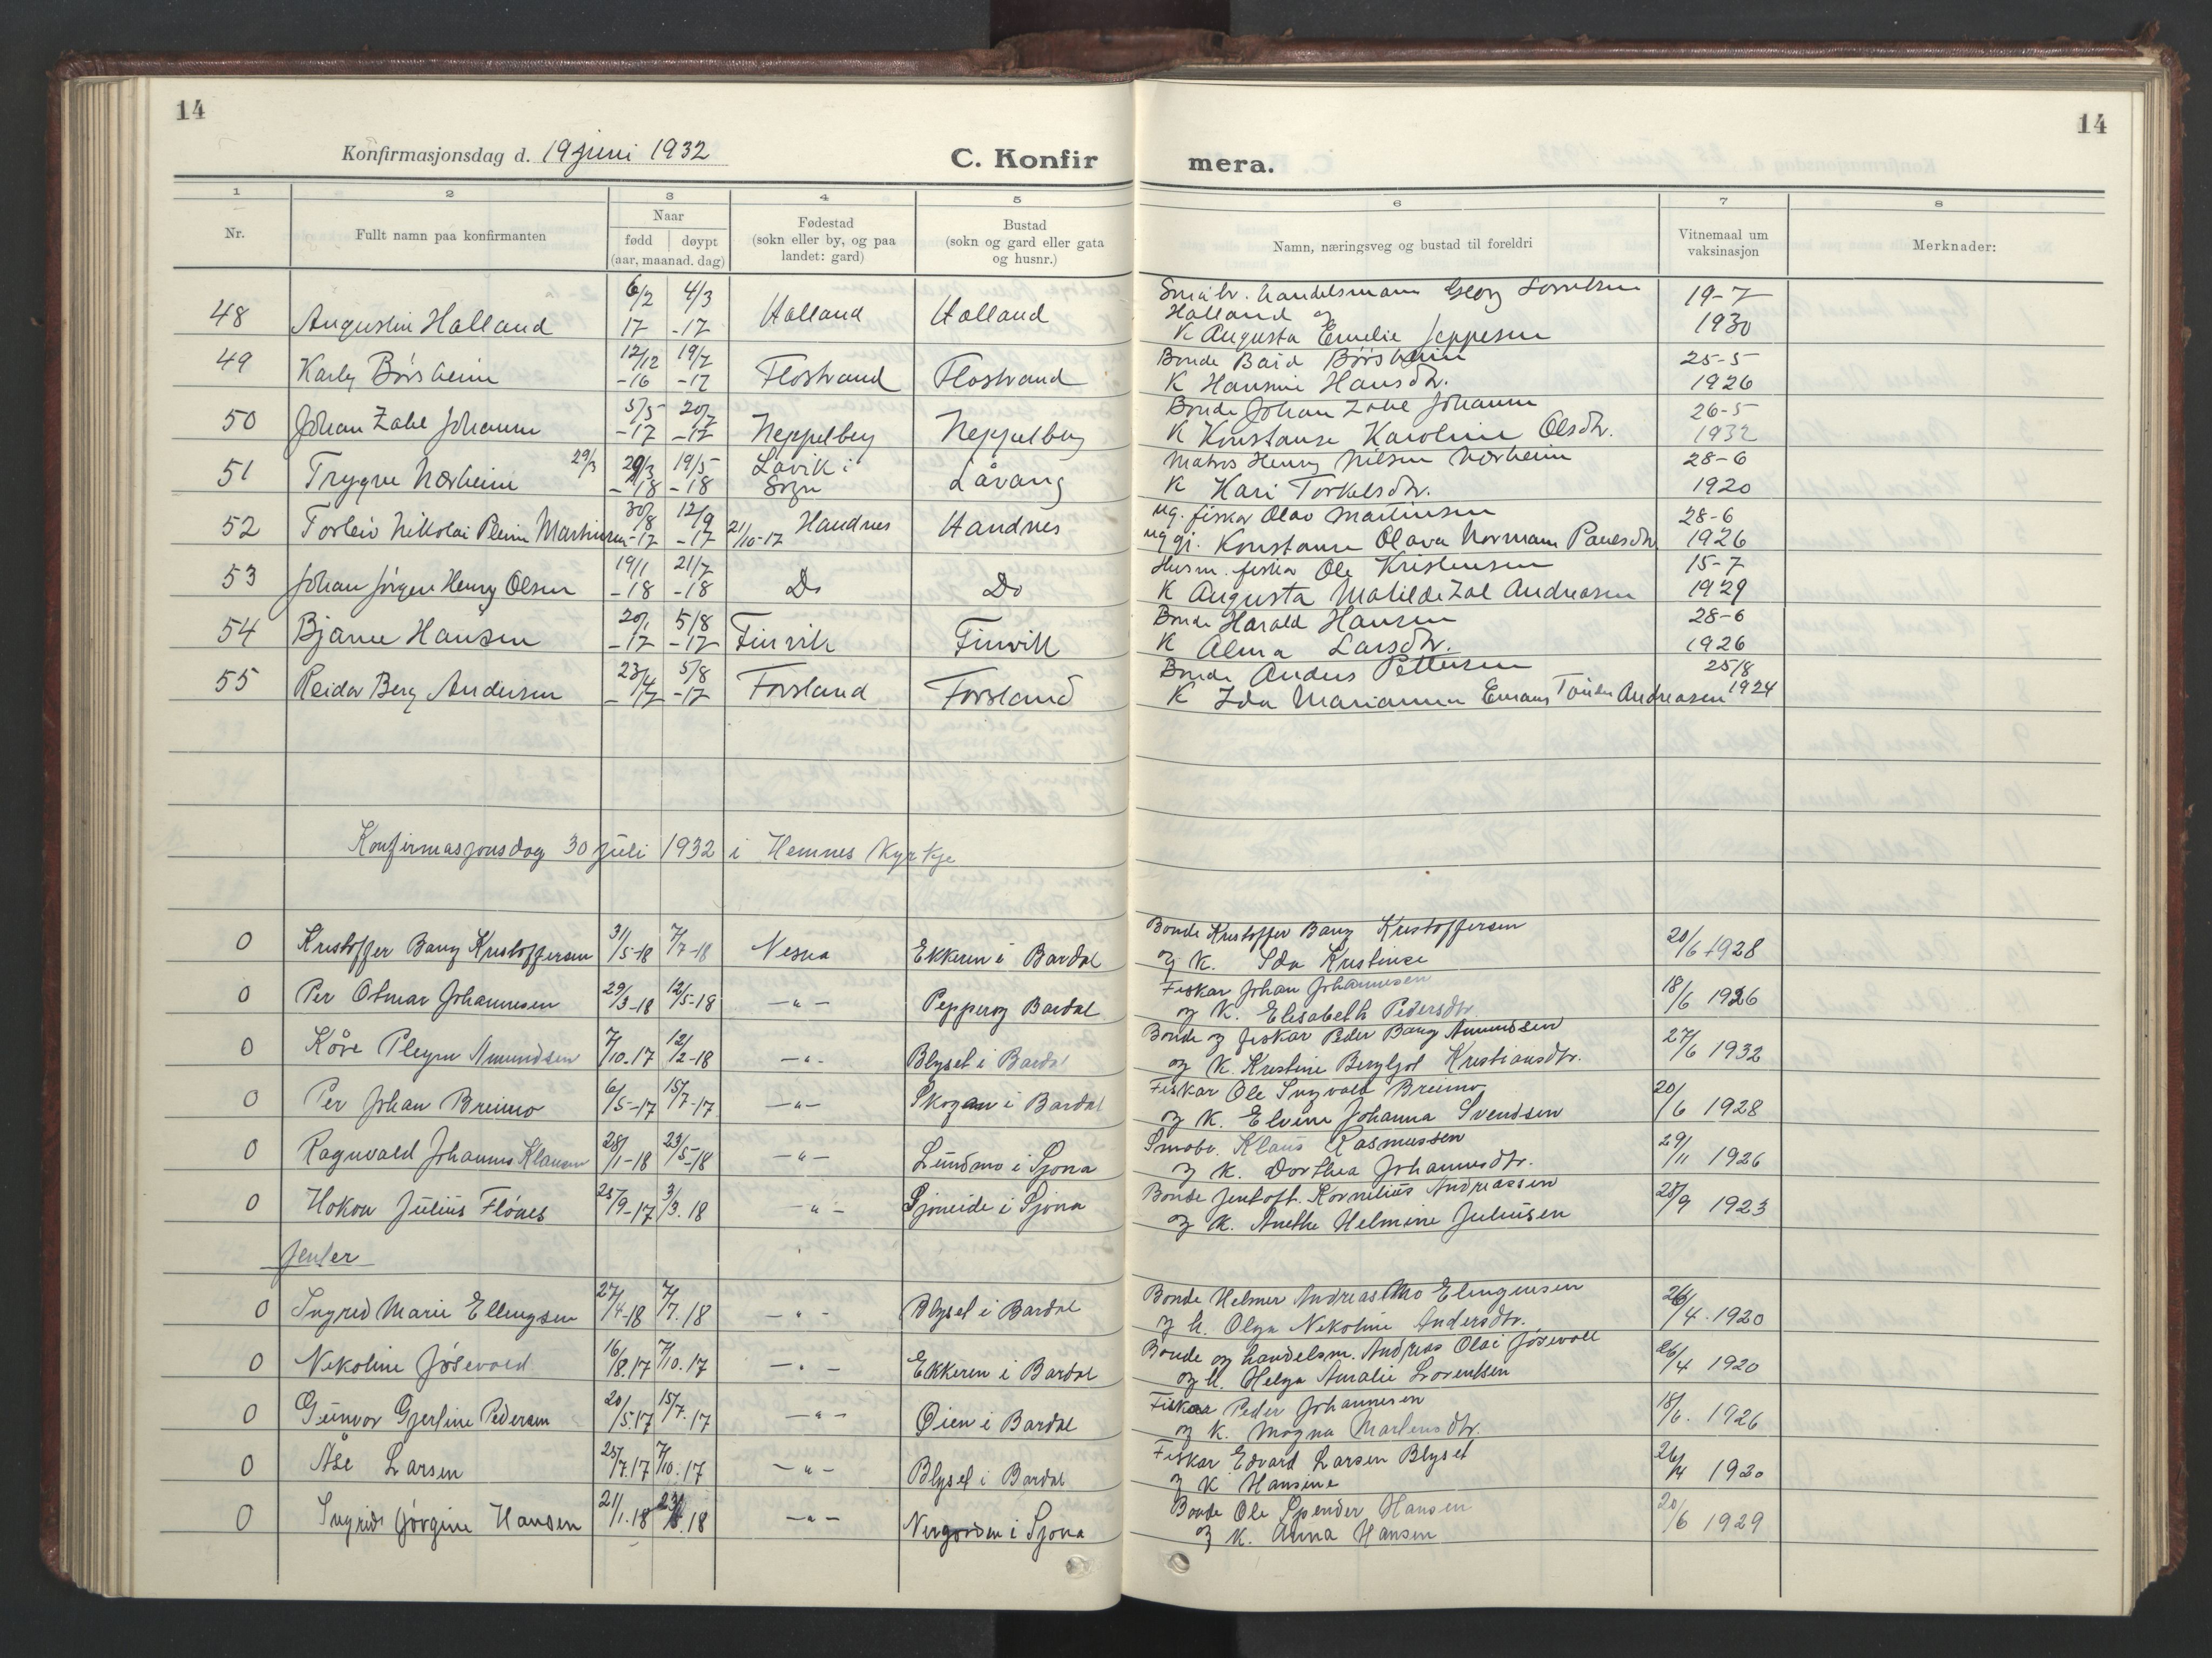 14
14
Konfirmasjonsdag d. 19 juni 1932
C. Konfir mera.
1 2 3 4 5 6 7 8
Nr.
Fullt namn paa konfirmanten
Naar
fødd døypt
(aar, maanad, dag)
Fødestad
(sokn eller by, og paa
landet: gard)
Bustad
(sokn og gard eller gata
og husnr.)
Namn, næringsveg og bustad til foreldri
Vitnemaal um
vaksinasjon
Merknader:
48 Augustin Halland 6/2 17 4/3 -17 Halland Halland
Småbr. handelsmann Georg
Halland og
K Augusta Emelie Jeppesen
19-7
1930
49 Karly Børsheim 12/12 -16 19/7 -17 Flostrand Flostrand
Bonde Baid Børsheim
K Hansine Hansdtr.
25-5
1926
50 Johan Zahl Johansen 5/5 -17 20/7 -17 Neppelberg Neppelberg
Bonde Johan Zahl Johansen
K Konstanse Karoline Olsdtr.
26-5
1932
51 Trygve Nærheim 29/3 29/3 -18 19/5 -18 Lavik i Sogn Låvang
Henry Nilsen Nærheim
K Kari Torkelsdtr.
28-6
1920
52 Torleiv Nikolai Pleim Martinsen 30/8 -17 12/9 -17 21/10-17 Handnes Handnes
ug. fiskar Olav Martinsen
ug gj. Konstanse Olava Normann Paulsdtr
28-6
1926
53 Johan Jørgen Henry Olsen 19/1 -18 21/7 -18 Do Do
Husm. fiskar Ole Kristensen
K Augusta Matilde Zal Andreasen
15-7
1929
54 Bjarne Hansen 20/1 -17 5/8 -17 Finvik Finvik
Bonde Harald Hansen
K Alma Larsdtr.
28-6
1926
55 Reidar Berg Andersen 23/4 -17 5/8 -17 Forsland Forsland
Bonde Anders Pettersen
K Ida Marianna Tønder Andreasen
25/8
1924
Konfirmasjonsdag 30 juli 1932 i Hemnes Kyrkje
0 Kristoffer Bang Kristoffersen 31/5-18 7/7-18 Nesna Ekkeren i Bardal
Bonde Kristoffer Bang Kristoffersen
og K. Ida Kristinse
20/6 1928
0 Per Otmar Johannesen 29/3-18 12/5-18 -"- Pepperog Bardal
Fiskar Johan Johannesen
og K. Elisabeth Pedersdtr.
18/6 1926
0 Kåre Pleym Amundsen 7/10.17 12/2-18 -"- Blyset i Bardal
Bonde og fiskar Peder Bang Amundsen
og K. Kristine Bergljot Kristiansdtr.
27/6 1932
0 Per Johan Breimo 6/5-17 15/7-17 -"- Skogan i Bardal
Fiskar Ole Ingvald Breimo
og K. Elvine Johanna Svendsen
20/6 1928
0 Ragnvald Johannes Klausen 28/1-18 23/5-18 -"- Lundmo i Sjona
Småbr. Klaus Rasmussen
og K. Dorthea Johannesdtr.
29/11 1926
0 Håkon Julius Flønes 25/9-17 3/3.18 -"- Sjoneide i Sjona
Bonde Jentoft Kornelius Andreassen
og K. Anethe Helmine Juliusen
25/9 1923
Jenter
0 Ingrid Marie Ellingsen 27/4-18 7/7.18 -"- Blyset i Bardal
Bonde Helmer Andreas Mo Elingensen
og k. Olga Nekoline Andersdtr.
26/4 1920
0 Nekoline Jøsevold 16/8.17 7/10.17 -"- Ekkeren i Bardal
Bonde og handelsm. Andreas Olai Jøsevoll
og k. Helga Amalie Lorentsen
26/4 1920
0 Gunvor Gjertine Pedersen 20/5.17 15/7.17 -"- Øien i Bardal
Fiskaa Peder Johannesen
og K. Magna Martensdtr.
18/6. 1926
0 Åse Larsen 25/7.17 7/10.17 -"- Blyset i Bardal
Fiskar Edvard Larsen Blyset
og K Hansine
26/4 1920
0 Ingrid Jørgine Hansen 21/1.18 18 -"- Nergården i Sjona
Bonde Ole Spender Hansen
og K. Anna Hansen
20/6 1929